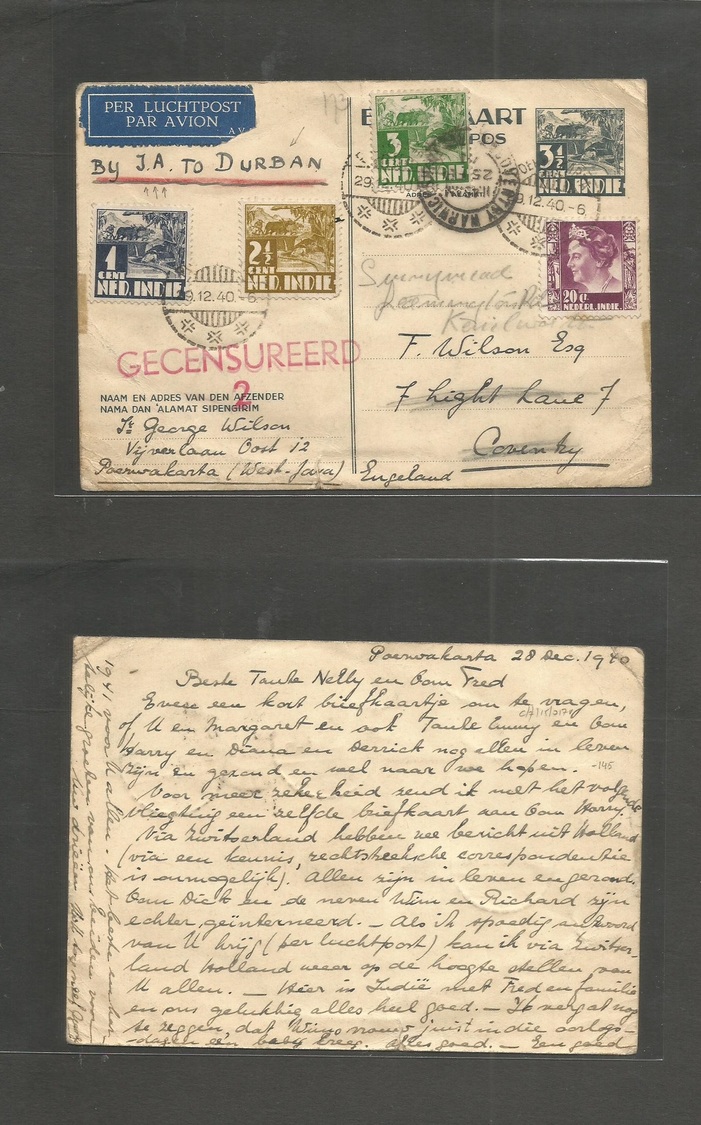 PER LUCHTPOST
PAR AVION
BY I.A. TO DURBAN
KAART
POS
3
CENT
NED. INDIE
3½
CENT
NED. INDIE
29.12.40
9.12.40.-6
1
CENT
NED. INDIE
2½
CENT
NED. INDIE
9.12.40.-6
20 c.
NEDERL. INDIE.
GECENSUREERD
2
NAAM EN ADRES VAN DEN AFZENDER
NAMA DAN ALAMAT SIPENGIRIM
Ir. George Wilson
Vijverlaan Oost 12
Poerwakarta (West-Java)
Sunnymead
Kenilworth
F. Wilson Esq
7 hight Lane 7
Coventry
Engeland
Poerwakarta 28 Dec. 1940
Beste Tante Nelly en Oom Fred
Even een kort briefkaartje om te vragen,
of U en Margaret en ook Tante Emmy en Oom
Harry en Diana en Derrick nog allen in leven
zijn en gezond en wel naar we hopen.
-145
Voor meer zekerheid zend ik met het volgende
vliegtuig een zelfde briefkaart aan Oom Harry.
Via Zwitserland hebben we bericht uit Holland
(via een kennis, rechtstreeksche correspondentie
is onmogelijk). Allen zijn in leven en gezond.
Oom Dick en de neven Wim en Richard zijn
echter geïnterneerd. – Als ik spoedig antwoord
van U krijg (per luchtpost) kan ik via Zwitser-
land Holland weer op de hoogte stellen van
U allen. – Hier in Indië met Fred en familie
en ons gelukkig alles heel goed. – Ik vergat nog
te zeggen, dat Wims vrouw juist in die oorlogs-
dagen een baby kreeg. Alles goed. – Een goed
1941 voor U allen. Het beste en har-
telijke groeten van ons beiden voor